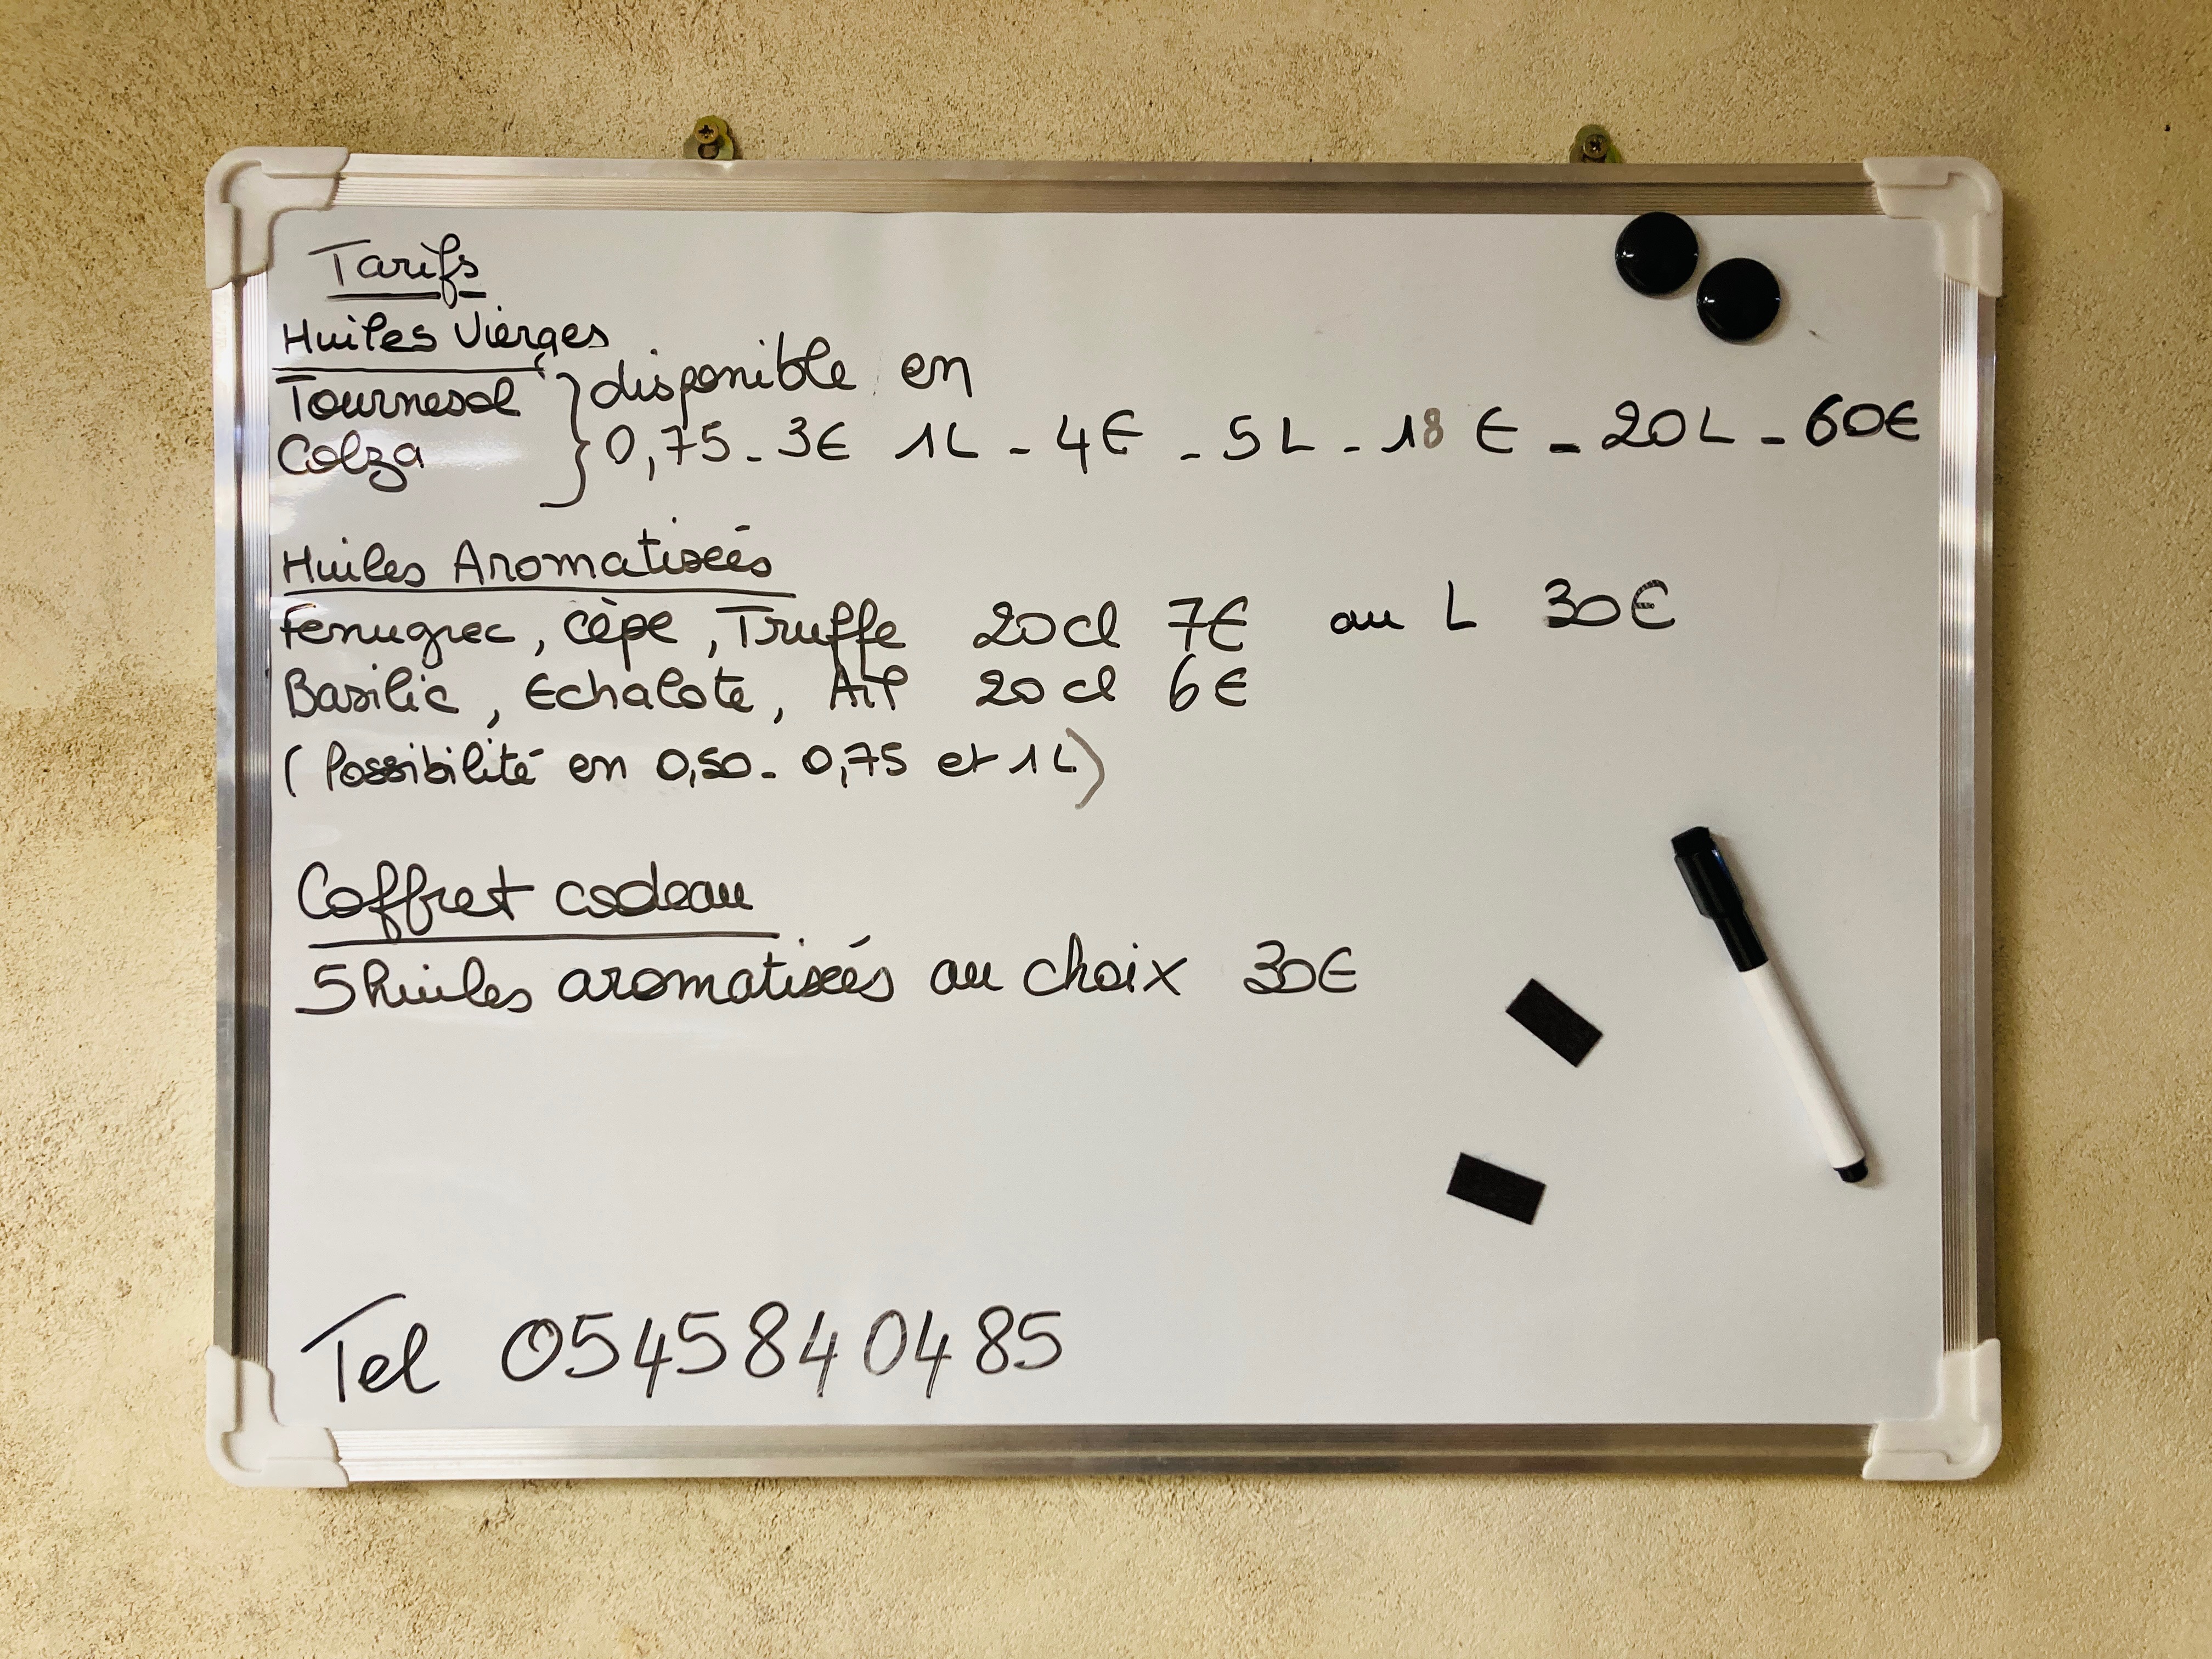 Tarifs
Huiles Vierges
Tournesol } disponible en
Colza } 0,75 - 3€ 1L - 4€ - 5L - 18 € - 20L - 60€
Huiles Aromatisées
Fenugrec, cèpe, Truffe 20cl 7€ au L 30€
Basilic, Echalote, Ail 20cl 6€
(Possibilité en 0,50 - 0,75 et 1L)
Coffret cadeau
5 huiles aromatisées au choix 30€
Tel 0545840485